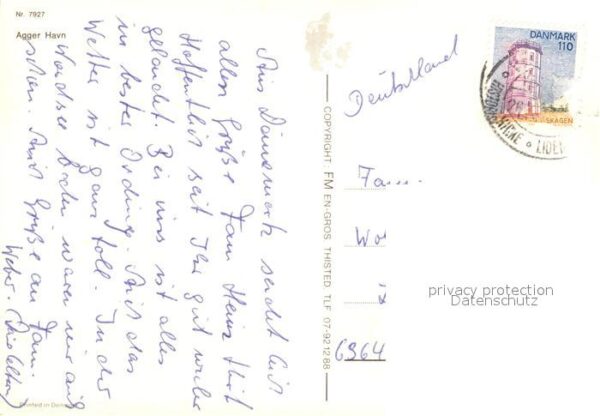 Nr. 7927
Agger Havn
Aus Dänemark sendet Euch
allen Grüße Fam Heinz Hirt
Hoffentlich seit Ihr gut wieder
gelandet. Bei uns ist alles
in bester Ordnung. Auch das
Wetter ist ganz toll. In der
Nordsee baden waren wir auch
schon. Auch Grüße an Fam.
Weber.
COPYRIGHT FM EN-GROS THISTED. TLF 07-92 12 88
Deutschland
DANMARK
110
SKAGEN
Fa
Wo
6964
privacy protection
Datenschutz